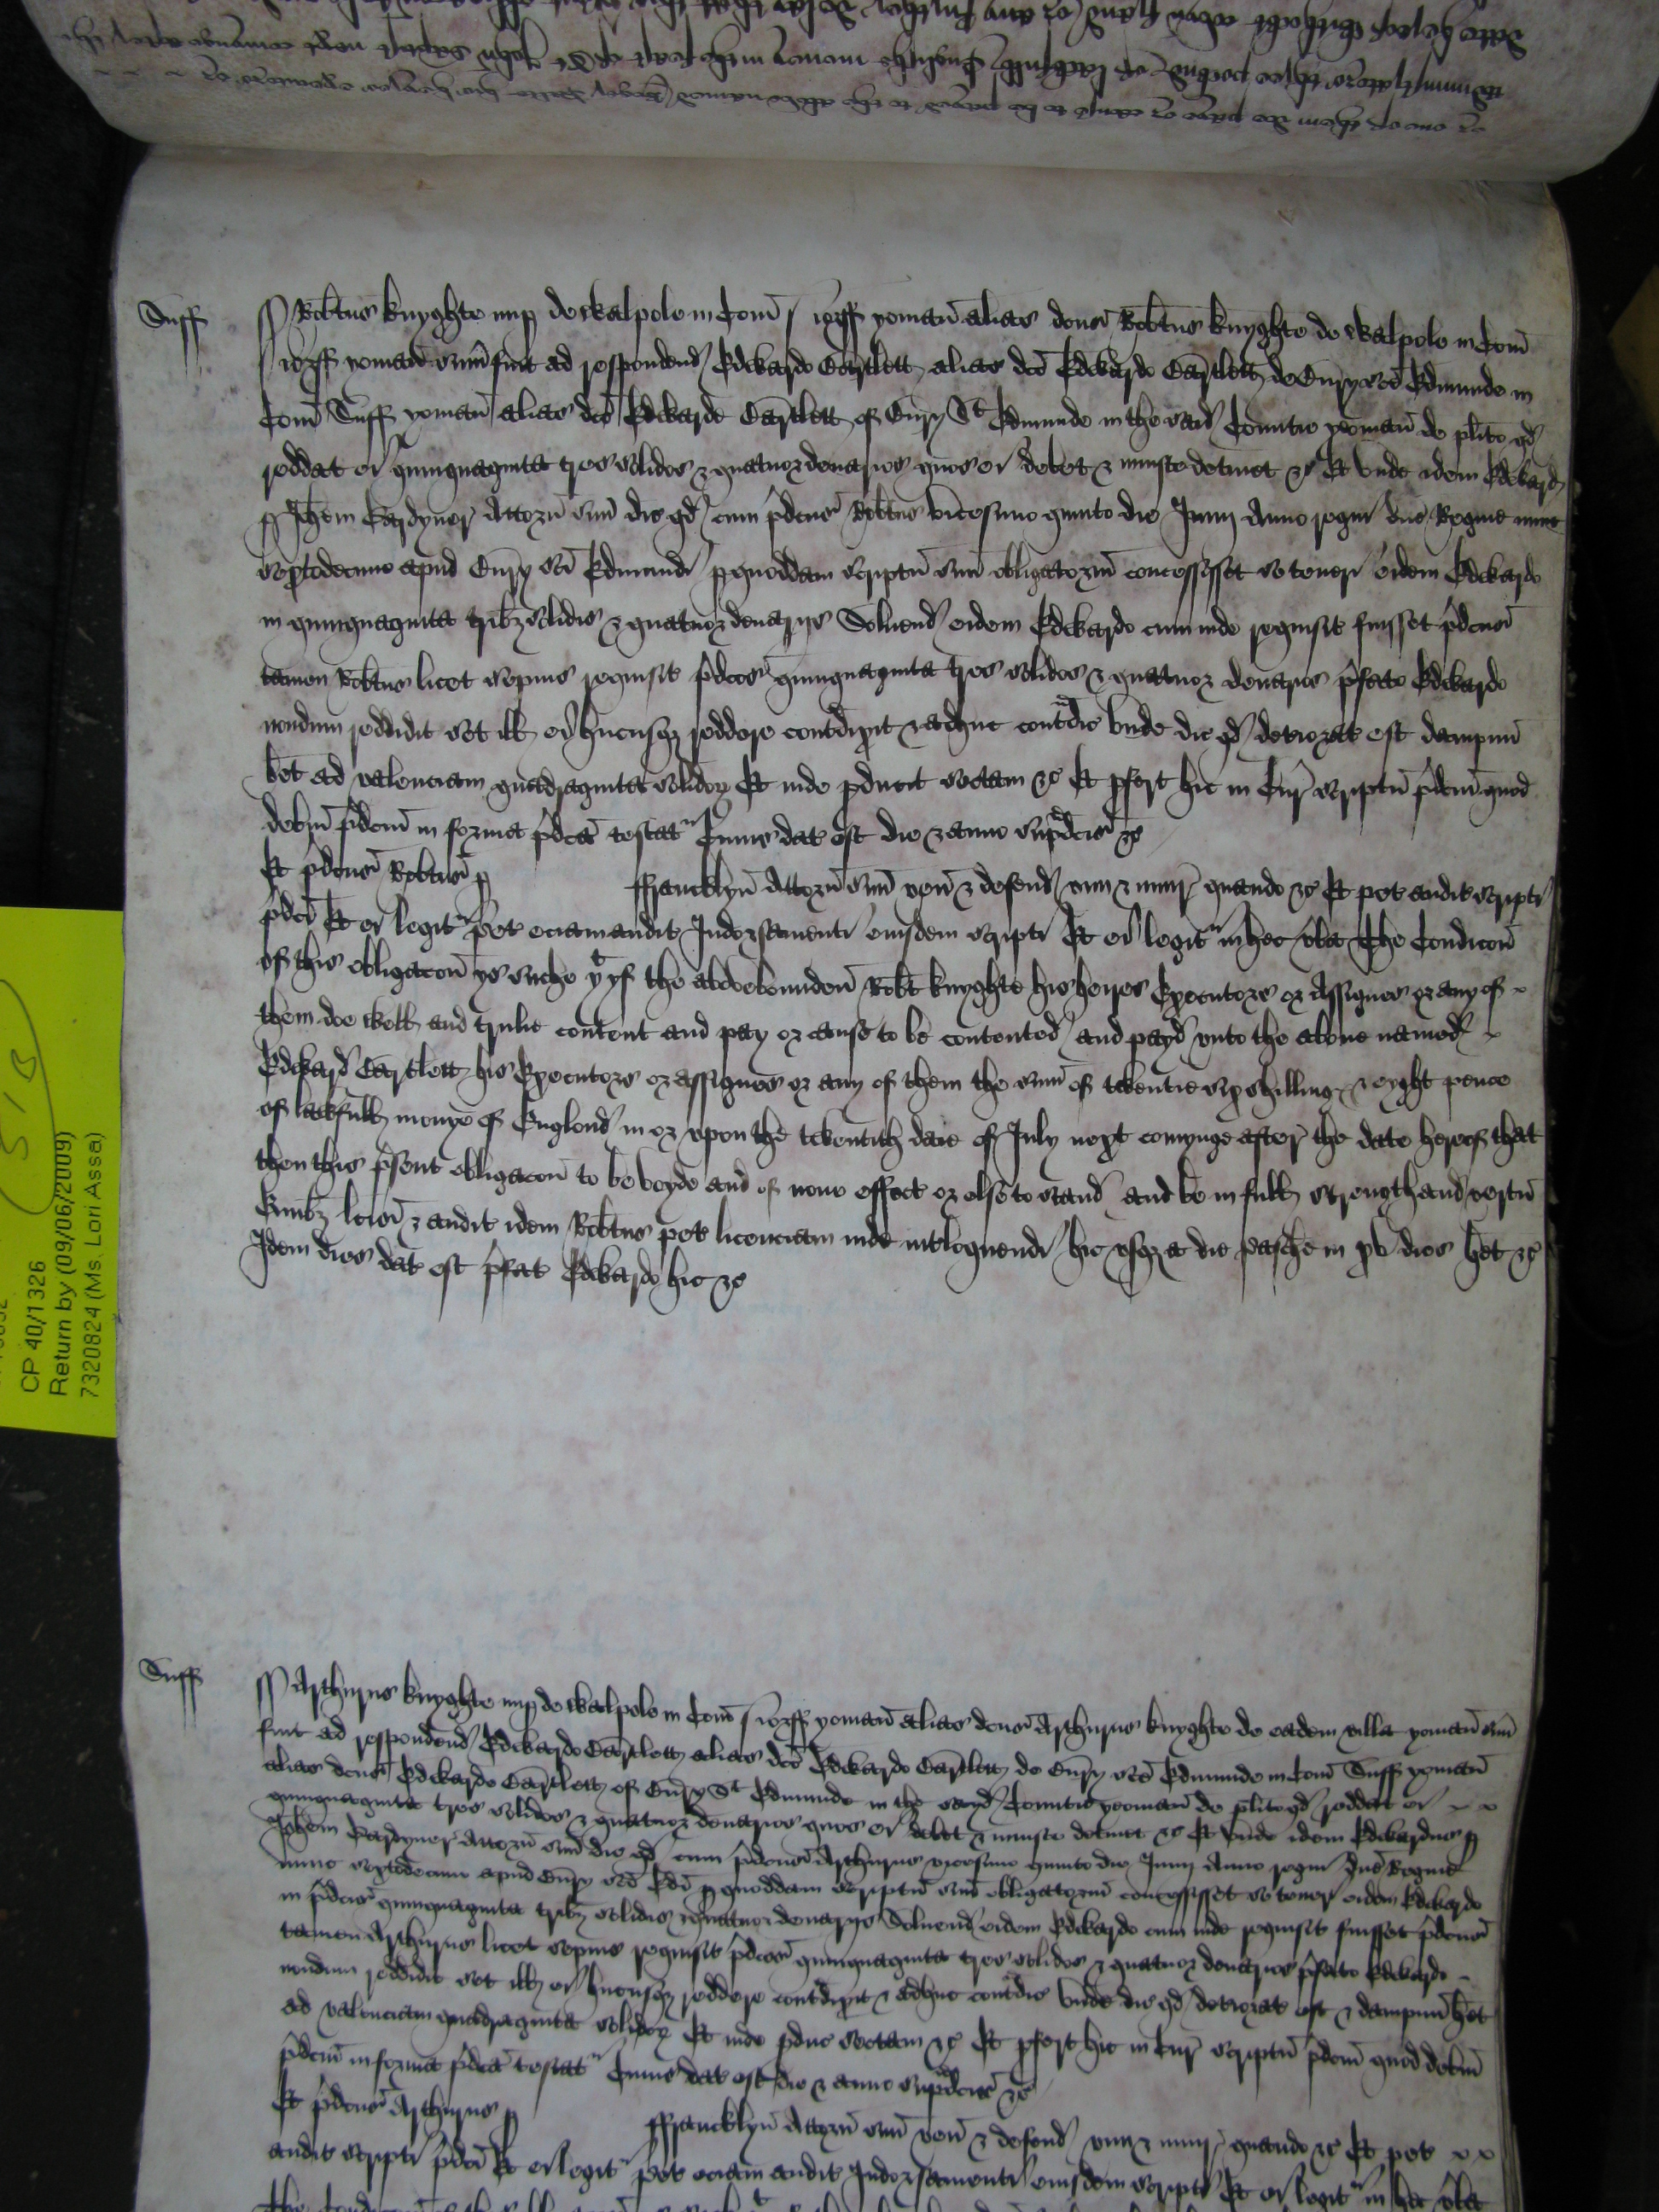 Suff
Robtus knyghte nup de Walpole in Com Norff yoman alias dcus Robtus knyghte de Walpole in Com
Norff yoman sum fuit ad respondend Edwardo Bartlett alias dco Edwardo Bartlett de Bury sci Edmunde in
Com Suff yoman alias dco Edwarde Bartlett of Bury St Edmunde in the said Countie yeoman de plito qd
reddat ei quinquaginta tres solidos & quatuor denarios quos ei debet & iniuste detinet &c Et unde idem Edward
p Johem Gardyner Attorn suu dic qd cum pdcus Robtus vicesimo quinto die Junij Anno regni dne Regine nunc
septodecimo apud Bury sci Edmundi p quoddam scriptu suu obligatoriu concessisset se teneri eidem Edwardo
in quinquaginta tribz solidis & quatuor denarijs Solvend eidem Edwardo cum inde requisit fuisset pdcus
tamen Robtus licet sepius requisit pdcos quinquaginta tres solidos & quatuor denarios pfato Edwardo
nondum reddidit set ill ei hucusqz reddere contradixit & adhuc contradic unde dic qd deteriorat est dampnu
het ad valenciam quadraginta solidor Et inde producit sectam &c Et pfert hic in Cur scriptu pdcm quod
debm pdcm in forma pdca testat Cuius dat est die & anno supradcis &c
Et pdcus Robtus p ffrancklyn Attorn suu ven & defend vim & iniur quando &c Et pet audit scripti
pdci Et ei legit pet eciam audit Indorsamenti eiusdem scripti Et ei legit in hec vba The Condicon
of this obligacon ys suche yt yf the abovebounden Robt knyghte his heyres Executors or Assignes or any of
them doe well and trulie content and pay or cause to be contented and payd unto the above named
Edward Bartlett his Executors or assignes or any of them the sum of twentie six shilling & eyght pence
of lawfull monye of England in or upon the twentith daie of July next comynge after the date hereof that
then this psent obligacon to be voyde and of none effect or else to stand and be in full strength and vertu
Quibz lectis & audit idem Robtus pet licenciam inde intloquendi hic usqz a die pasche in xv dies het &c
Idem dies dat est pfat Edwardo hic &c
Suff
Arthurus knyghte nup de Walpole in Com Norff yoman alias dcus Arthurus knyghte de eadem villa yoman sum
fuit ad respondend Edwardo Bartlett alias dco Edwardo Bartlett de Bury sci Edmunde in Com Suff yoman
alias dcus Edwardo Bartlett of Bury St Edmunde in the sayd Countie yeoman de plito qd reddat ei
quinquaginta tres solidos & quatuor denarios quos ei debet & iniuste detinet &c Et unde idem Edwardus p
Johem Gardyner Attorn suu dic qd cum pdcus Arthurus vicesimo quinto die Junij Anno regni dne Regine
nunc septodecimo apud Bury sci Edi p quoddam scriptu suu obligatoriu concessisset se teneri eidem Edwardo
in pdcis quinquaginta tribz solidis & quatuor denarijs Solvend eidem Edwardo cum inde requisit fuisset pdcus
tamen Arthurus licet sepius requisit pdcos quinquaginta tres solidos & quatuor denarios pfato Edwardo
nondum reddidit set ill ei hucusqz reddere contradixit & adhuc contradic unde dic qd deteriorat est & dampnu het
ad valenciam quadraginta solidor Et inde produc sectam &c Et pfert hic in Cur scriptu pdcm quod debm
pdcm in forma pdca testat Cuius dat est die & anno supradcis &c
Et pdcus Arthurus p ffrancklyn Attorn suu ven & defend vim & iniur quando &c Et pet
audit scripti pdci Et ei legit pet eciam audit Indorsamenti eiusdem scripti Et ei legit in hec vba
CP 40/1326
Return by (09/06/2009)
7320824 (Ms. Lori Assa)